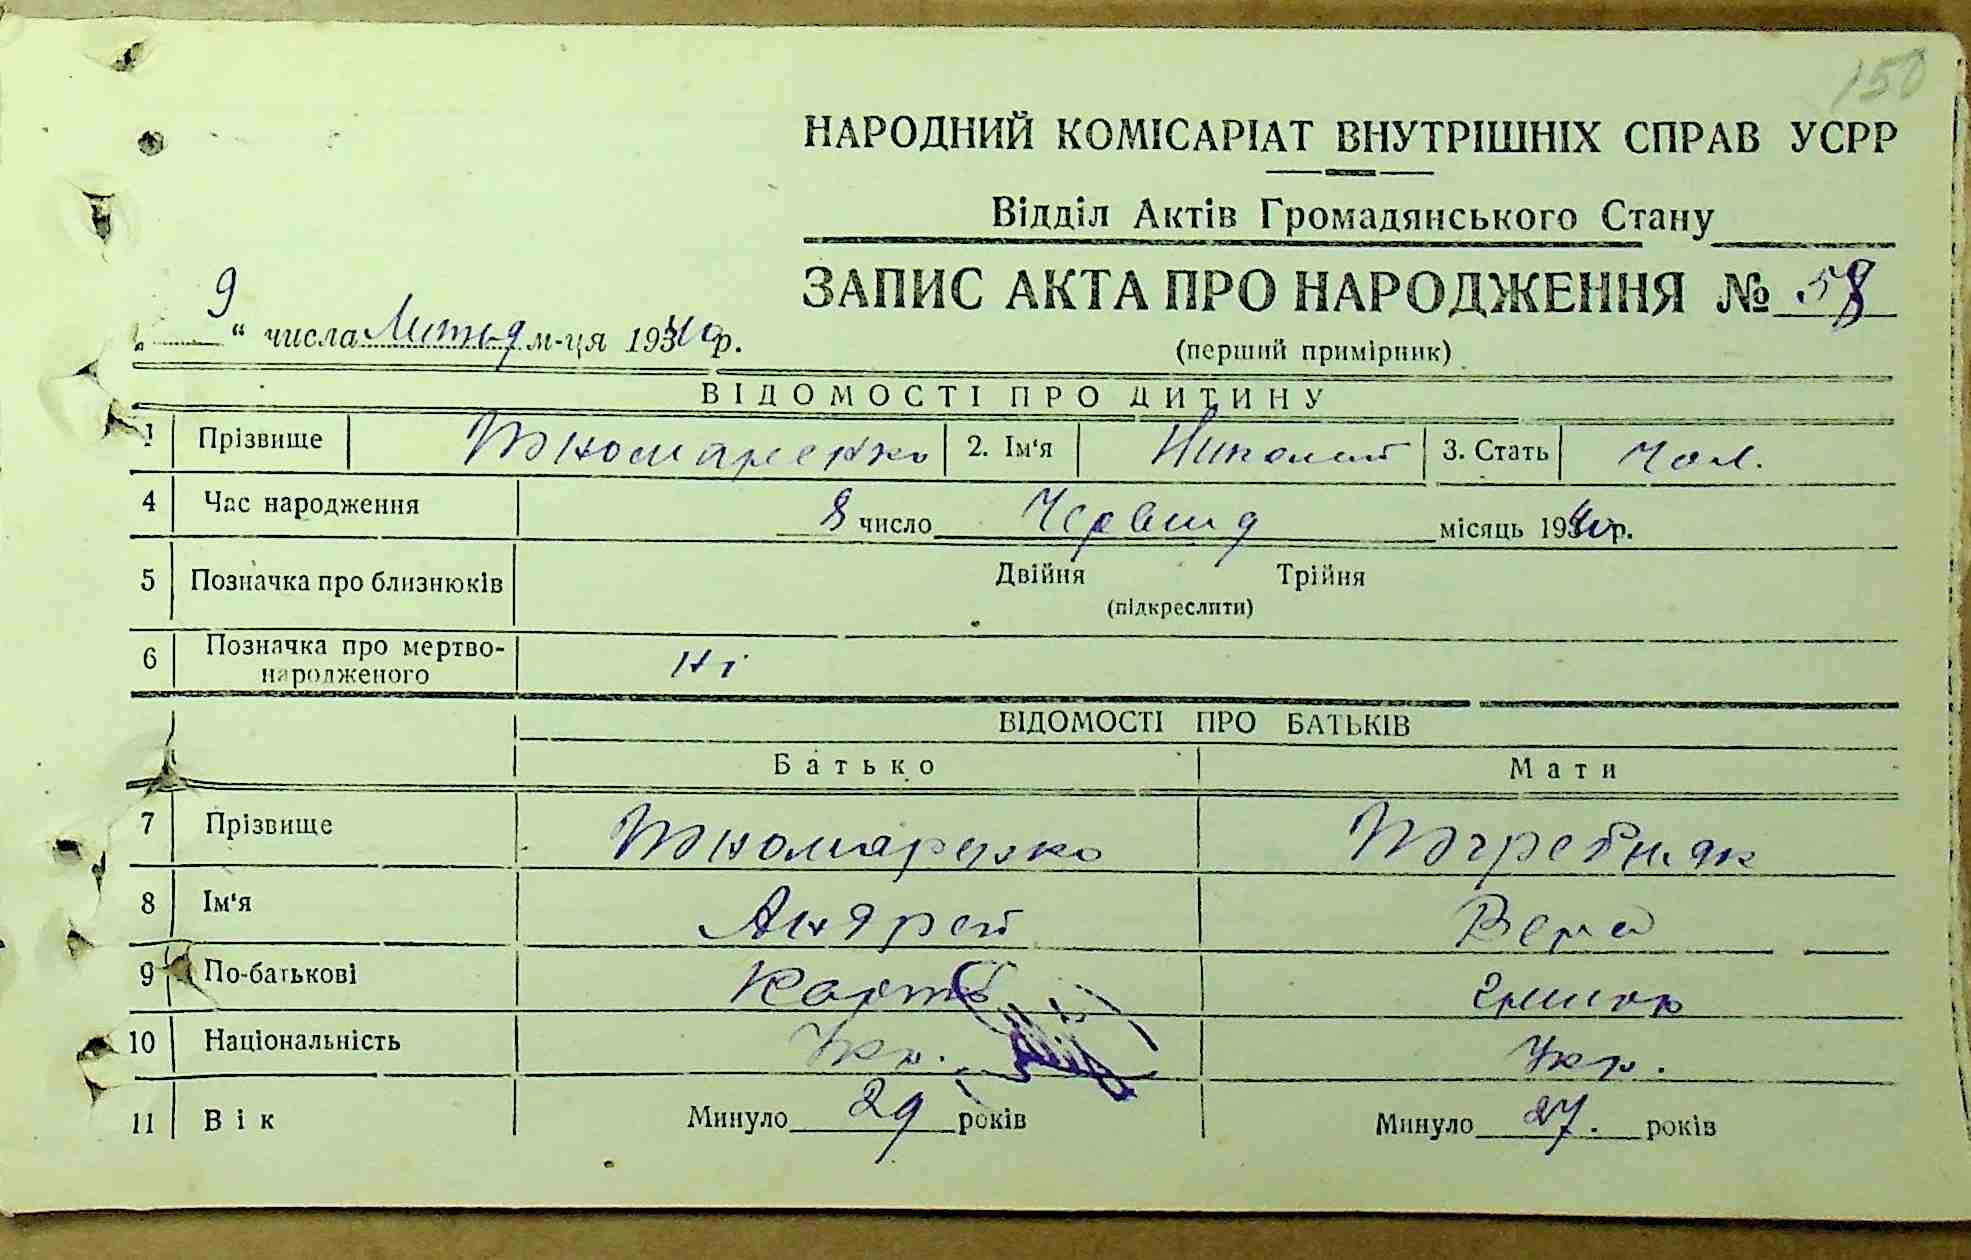 150
НАРОДНИЙ КОМІСАРІАТ ВНУТРІШНІХ СПРАВ УСРР
Відділ Актів Громадянського Стану
ЗАПИС АКТА ПРО НАРОДЖЕННЯ № 58
„ 9 “ числа м-ця 1940 р.
(перший примірник)
ВІДОМОСТІ ПРО ДИТИНУ
1 Прізвище Пономаренко 2. Ім'я Николай 3. Стать Чол.
4 Час народження 8 число Червня місяць 1940 р.
5 Позначка про близнюків Двійня Трійня
(підкреслити)
6 Позначка про мертво-
народженого Ні
ВІДОМОСТІ ПРО БАТЬКІВ
Батько Мати
7 Прізвище Пономаренко Погребняк
8 Ім'я Андрей Вера
9 По-батькові
10 Національність Укр. Укр.
11 Вік Минуло 29 років Минуло 27. років